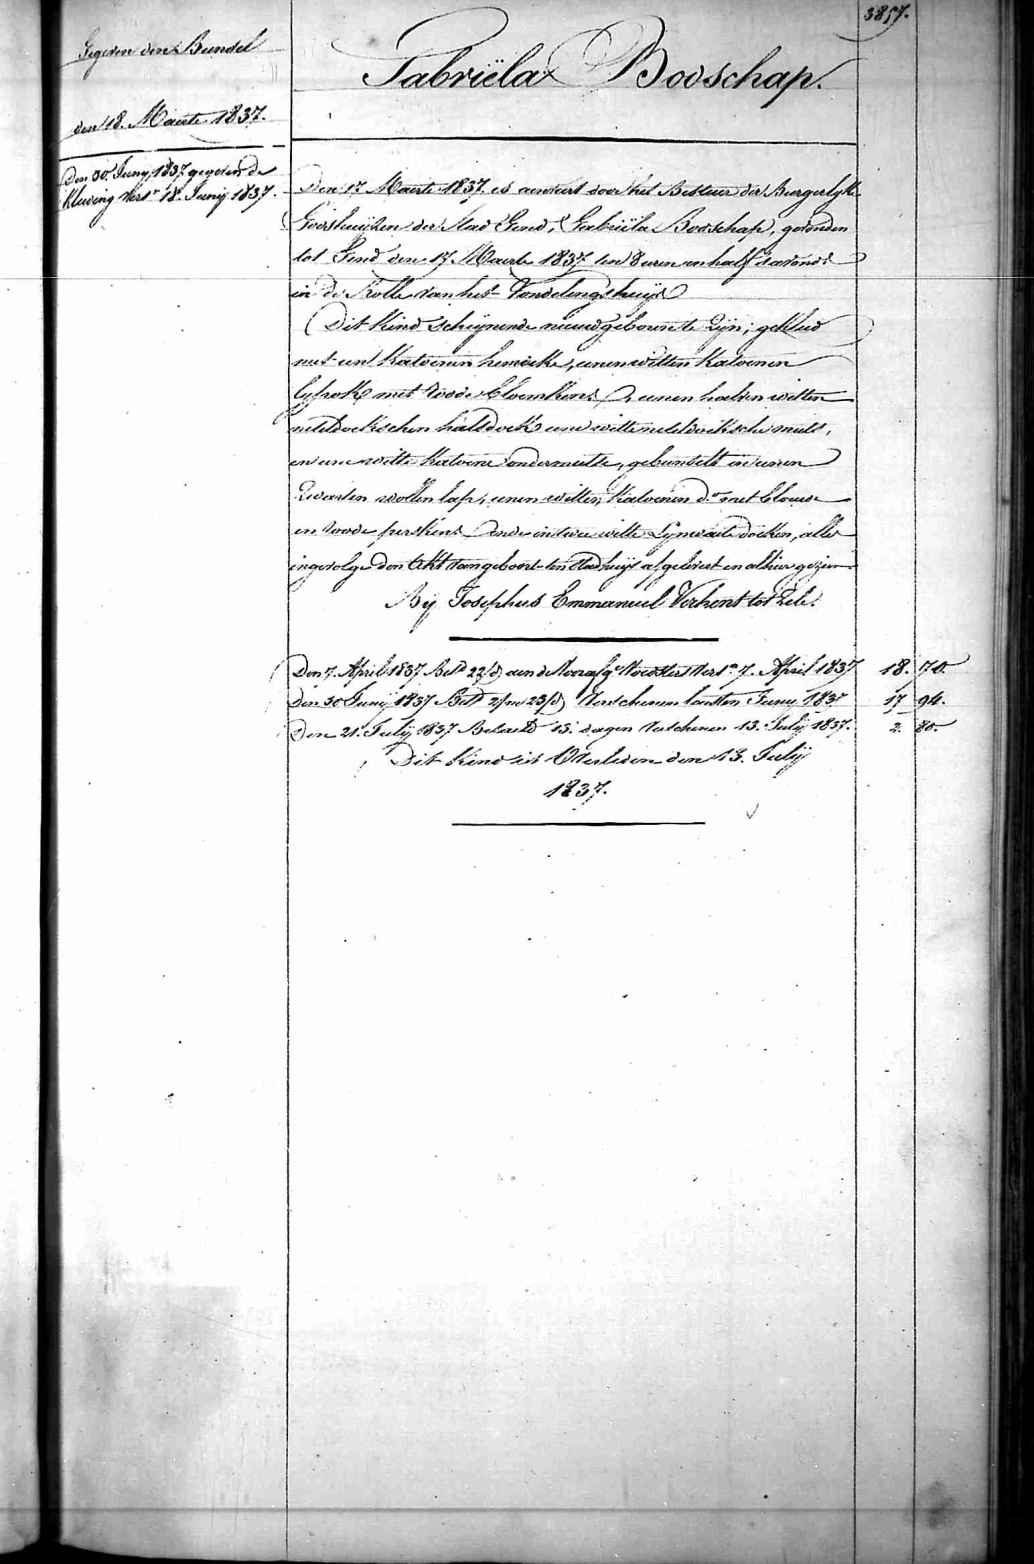 3857.
Gegeven den Bundel
den 18. Maerte 1837.
Den 30. Juny 1837 gegeven de
Kleeding Vers.n 18. Junij 1837.
Gabriëla Boodschap.
Den 17 Maerte 1837 is aenveert door het Bestuer der Burgerlyke
Godshuijzen der Stad Gend, Gabriëla Boodschap, gevonden
tot Gend den 17 Maerte 1837 ten 8 uren en half s'avonds
in de Rolle van het Vondelingshuijs
Dit Kind scheijnende nieuwgeboren te Zijn; gekleed
met een Katoenen hemdeke, eenen witten Katoenen
lyfrok met roode bloemkens, eenen halven witten
neteldoekschen halsdoek eene witte neteldoeksche muts,
en eene witte Katoene ondermutse, gebundelt in eenen
Zwarten wollen lap, eenen witten Katoenen d.o met blauwe
en roode perkens ende in twee witte Lynwaete doeken, alles
ingevolge den Akt van geboort ten Stadhuijs afgelevert en alhier gezien
Bij Josephus Emmanuel Verhent tot Zele.
Den 7. April 1837 Bet.d 22/d aen de Voorafg.e Voedster Vers.n 7. April 1837 18. 70.
Den 30 Junij 1837 Bet.d 2/m 23/d Verschenen lausten Juny 1837 17 94.
Den 21. Julij 1837 Betaeld 13. dagen Verschenen 13. Julij 1837. 2. 80.
Dit Kind is Overleden den 13. Julij
1837.